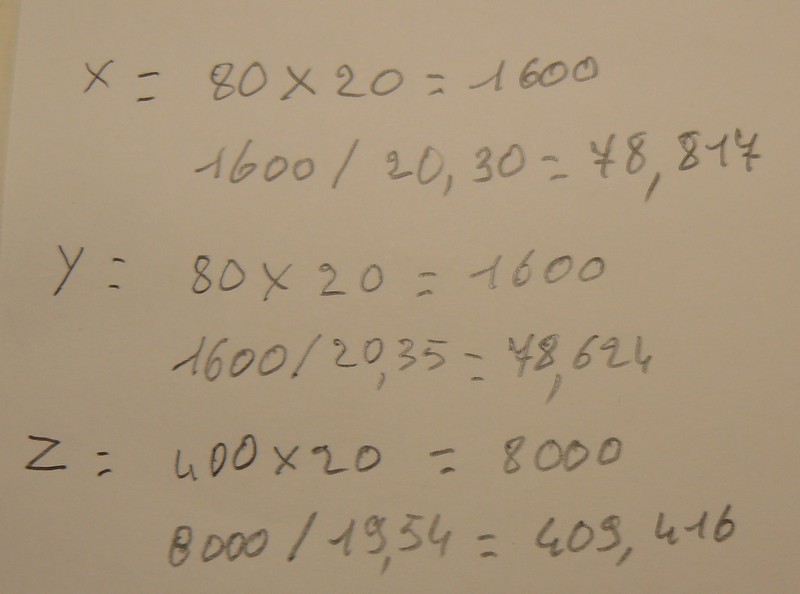 X = 80 x 20 = 1600
1600 / 20,30 = 78,817
Y = 80 x 20 = 1600
1600 / 20,35 = 78,624
Z = 400 x 20 = 8000
8000 / 19,54 = 409,416